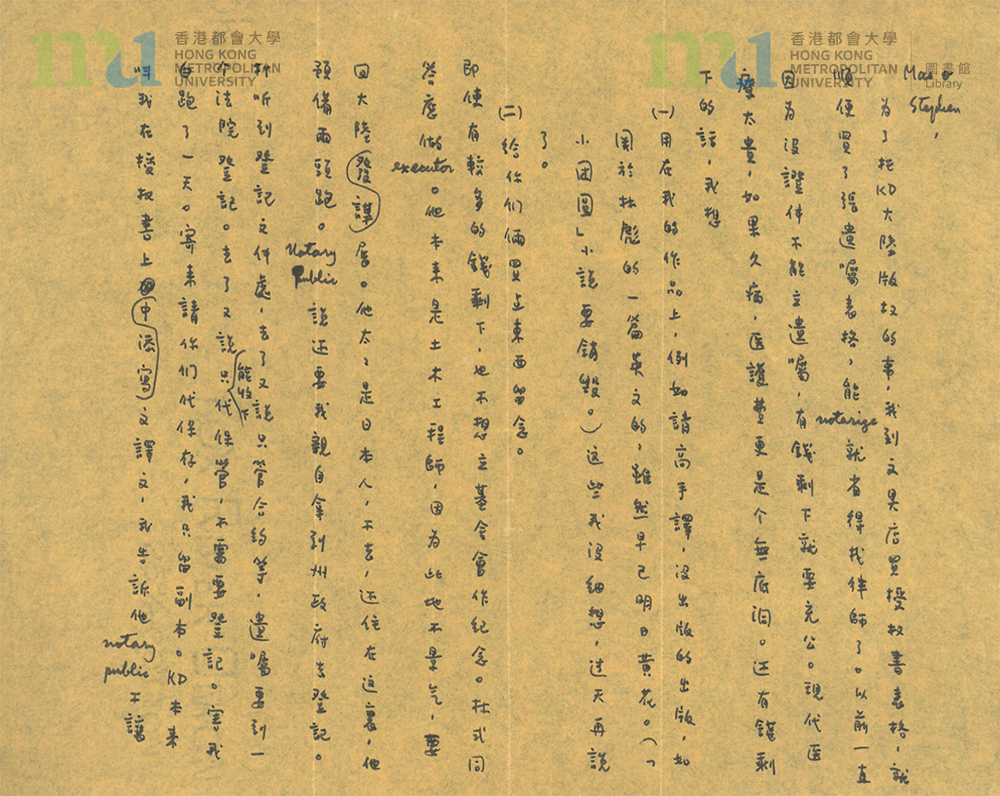 Mae &
Stephen,
為了托KD大陸版权的事，我到文具店買授权書表格，就
順便買了張遺囑表格，能notarize就省得找律師了。以前一直
因为沒證件不能立遺囑，有錢剩下就要充公。現代医
療太貴，如果久病，医護費更是个無底洞。还有錢剩
下的話，我想
(一)用在我的作品上，例如請高手譯，沒出版的出版，如
関於林彪的一篇英文的，雖然早已明日黃花。(「
小团圓」小說要銷毀。)这些我沒細想，过天再說
了。
(二)給你们倆買点東西留念。
即使有較多的錢剩下，也不想立基金會作紀念。林式同
答應做executor。他本来是土木工程師，因为此地不景气，要
回大陸發謀展。他太々是日本人，不去，还住在这裏，他
預備兩頭跑。Notary Public說还要我親自拿到州政府去登記。
所听到登記文件處，去了又說只管合约等，遺囑要到一
个法院登記。去了又說只能收下代保管，不需要登記。害我
白跑了一天。寄来請你们代保存，我只留副本。KD本来
叫我在授权書上中添寫文譯文，我告訴他notary public不讓
香港都會大學
HONG KONG
METROPOLITAN
UNIVERSITY
香港都會大學
HONG KONG
METROPOLITAN
UNIVERSITY
圖書館
Library